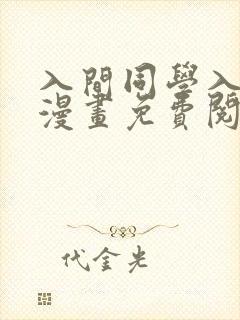 入間同學入
漫畫免費閱
代金光